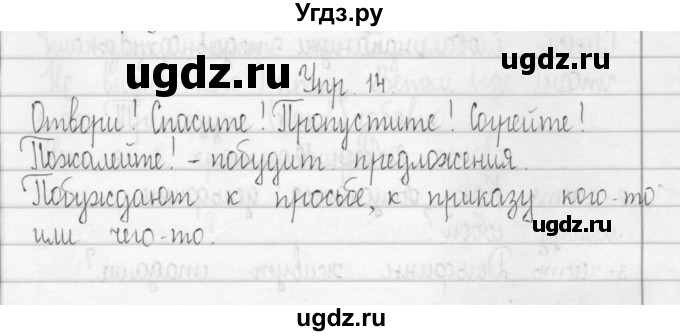 Угдз.ру
ugdz.ru ugdz.ru
Упр. 14.
Отвори! Спасите! Пропустите! Согрейте!
Пожалейте! - побудит. предложения.
Побуждают к просьбе, к приказу кого-то
или чего-то.
ugdz.ru ugdz.ru
ugdz.ru